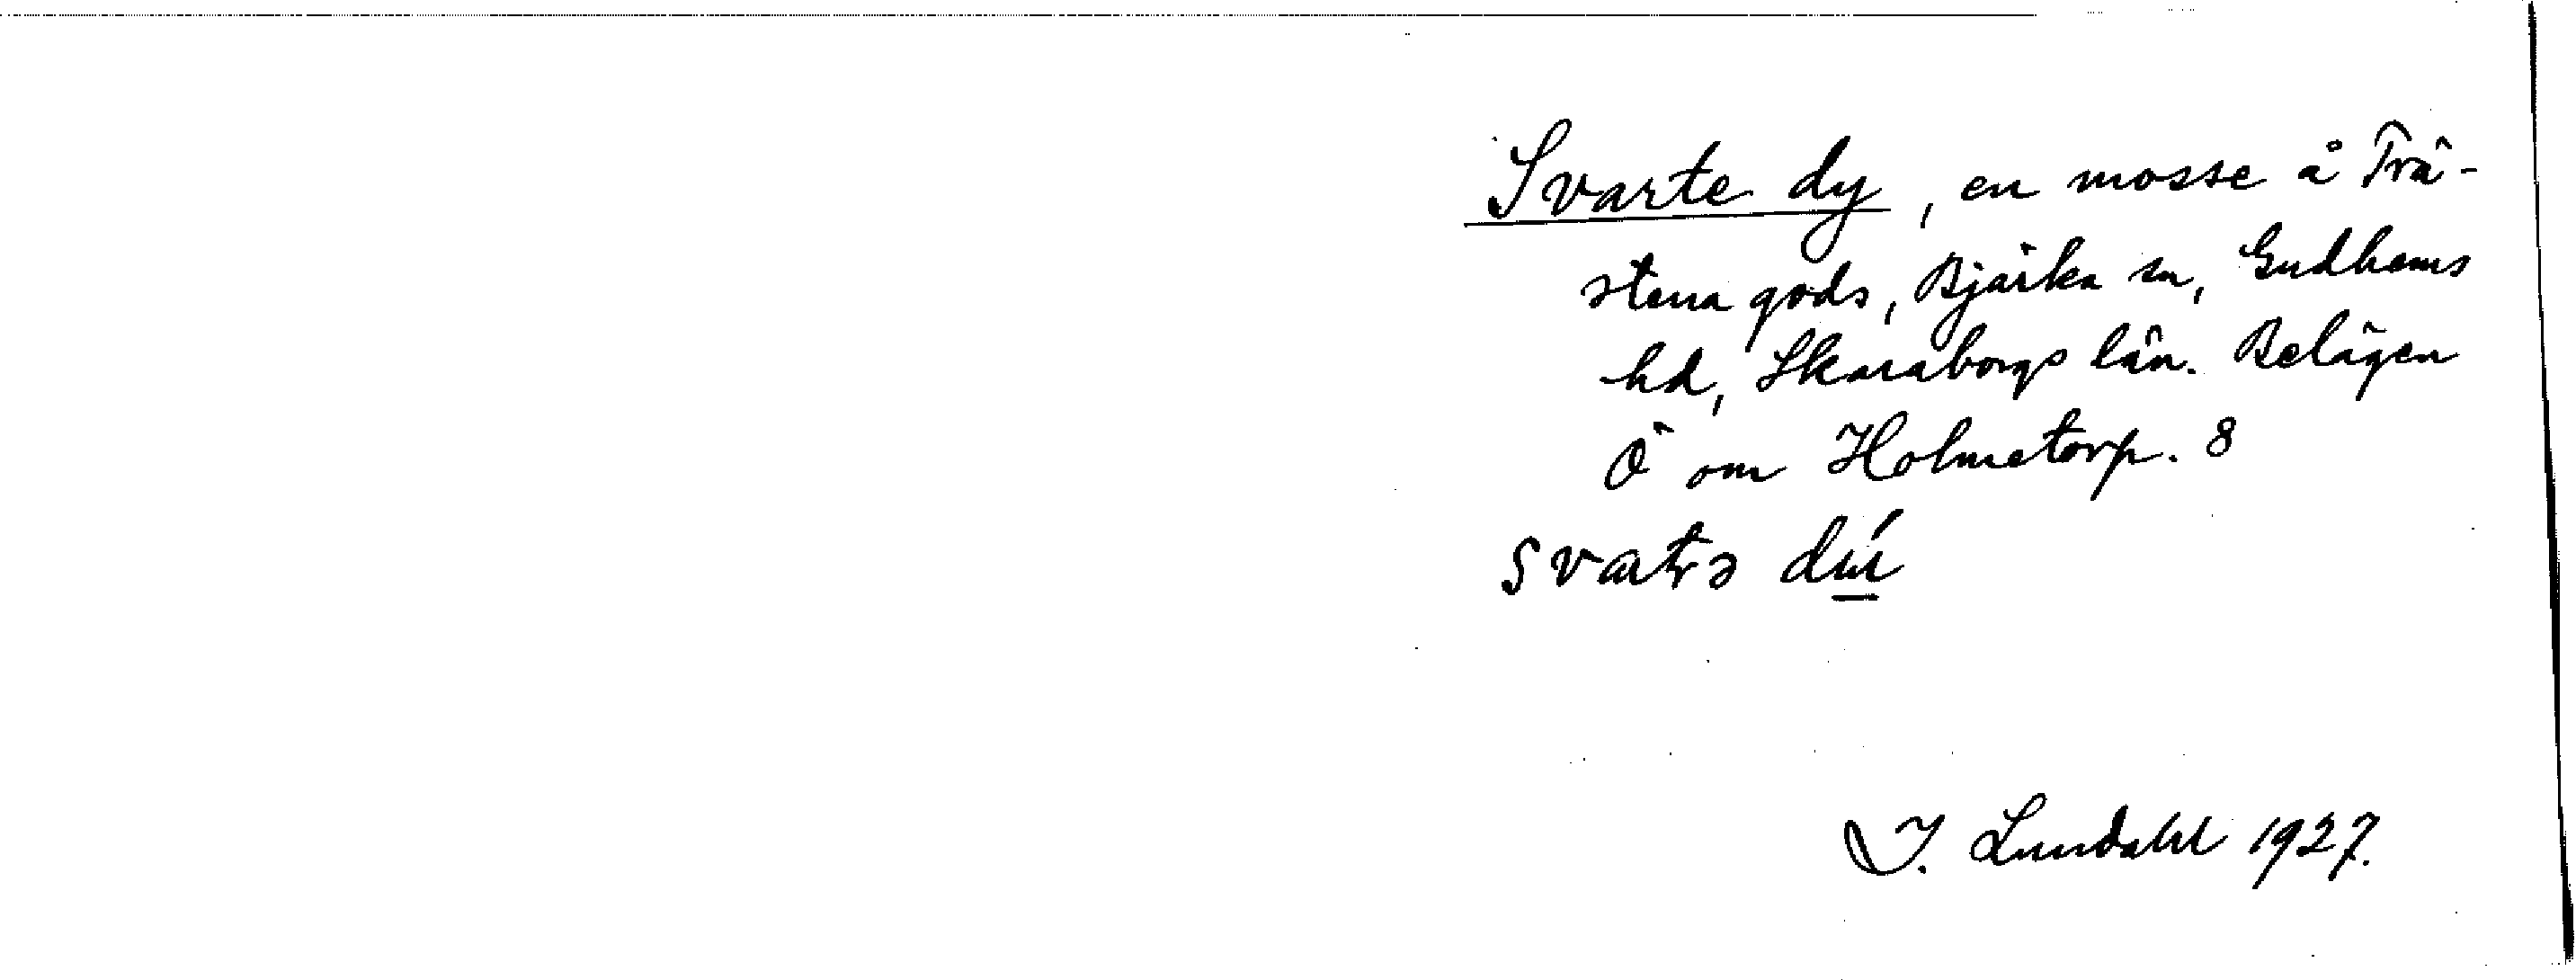 Svarte dy, en mosse å Trä-
stena gods, Bjärka sn, Gudhems
hd, Skaraborgs län. Belägen
Ö om Holmetorp. 8
svatə
I. Lundahl 1927.